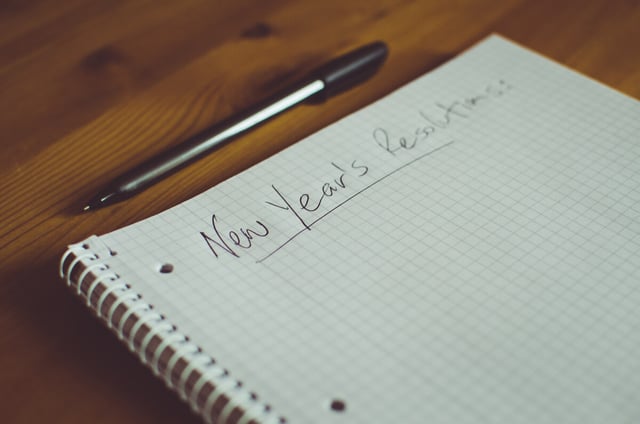 New Year's Resolutions: